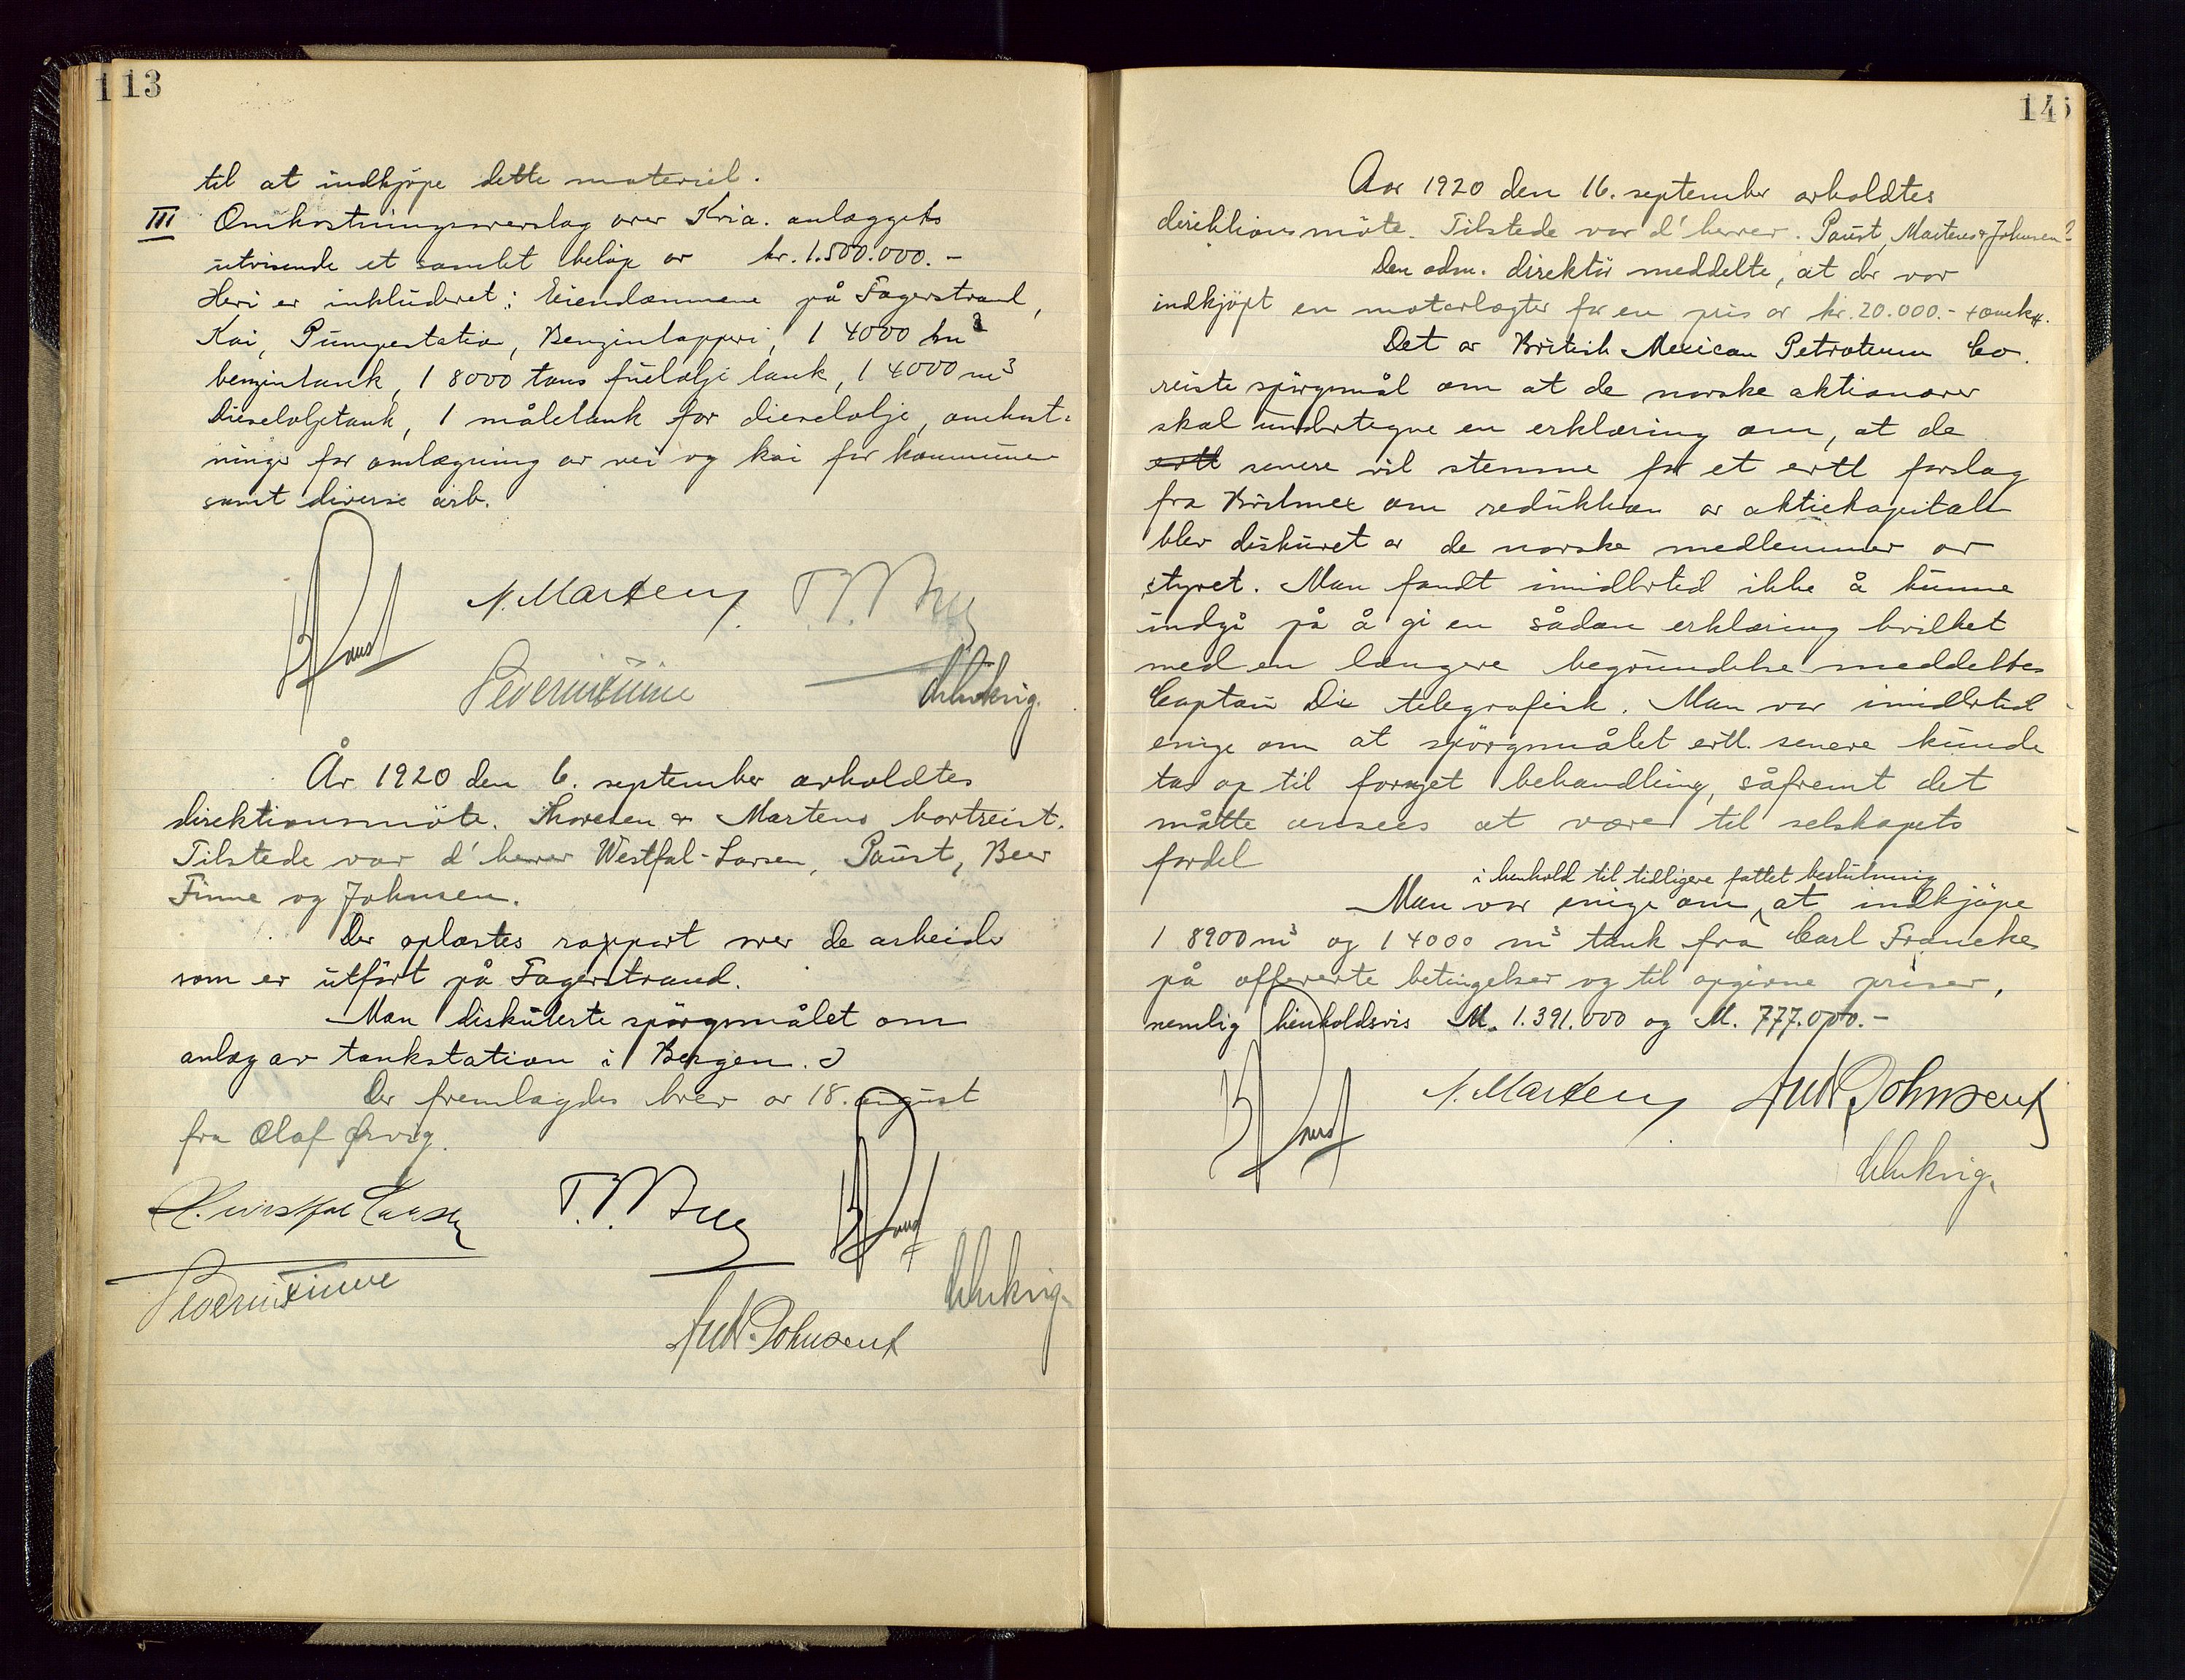 113
til at indkjøpe dette materiel.
III Omkostningsoverslag over Kria. anlægget
utvisende et samlet beløp av kr. 1.500.000.-
Heri er inkluderet: Eiendommene på Fagerstrand,
Kai, Pumpestation, Benzintapperi, 1 4000 m3
benzintank, 1 8000 tons fuelolje tank, 1 4000 m3
Dieseloljetank, 1 måletank for dieselolje, omkost-
ninger for omlægning av vei og kai for kommunen
samt diverse arb.
B Paust N. Martens T. M. Beer
Severin Finne
År 1920 den 6. september avholdtes
direktionsmöte. Thoresen & Martens bortreist.
Tilstede var d'herrer Westfal-Larsen, Paust, Beer
Finne og Johnsen.
Der oplæstes rapport over de arbeider
som er utfört på Fagerstrand.
Man diskuterte spörgsmålet om
anlæg av tankstation i Bergen.
Der fremlagdes brev av 18. august
fra Olaf Ørvig.
H. Westfal Larsen T. M. Beer B Paust
Severin Finne
Ant. Johnsen
145
Aar 1920 den 16. september avholdtes
direktionsmöte. Tilstede var d'herrer. Paust, Martens & Johnsen
Den adm. direktör meddelte, at der var
indkjöpt en motorlægter for en pris av kr. 20.000.- + omk.
Det av British Mexican Petroleum Co.
reiste spörgsmål om at de norske aktionærer
skal undertegne en erklæring om, at de
evtl senere vil stemme for et evtl forslag
fra Britmex om reduktion av aktiekapitalen
blev diskuret av de norske medlemmer av
styret. Man fandt imidlertid ikke å kunne
indgå på å gi en sådan erklæring hvilket
med en længere begrundelse meddeltes
Captain Dix telegrafisk. Man var imidlertid
enige om at spörgsmålet evtl. senere kunde
tas op til fornyet behandling, såfremt det
måtte ansees at være til selskapets
fordel
i henhold til tidligere fattet beslutning
Man var enige om at indkjöpe
1 8900 m3 og 1 4000 m3 tank fra Carl Francke
på offererte betingelser og til opgivne priser,
nemlig henholdsvis M. 1.391.000 og M. 777.000.-
B Paust N. Martens Ant. Johnsen